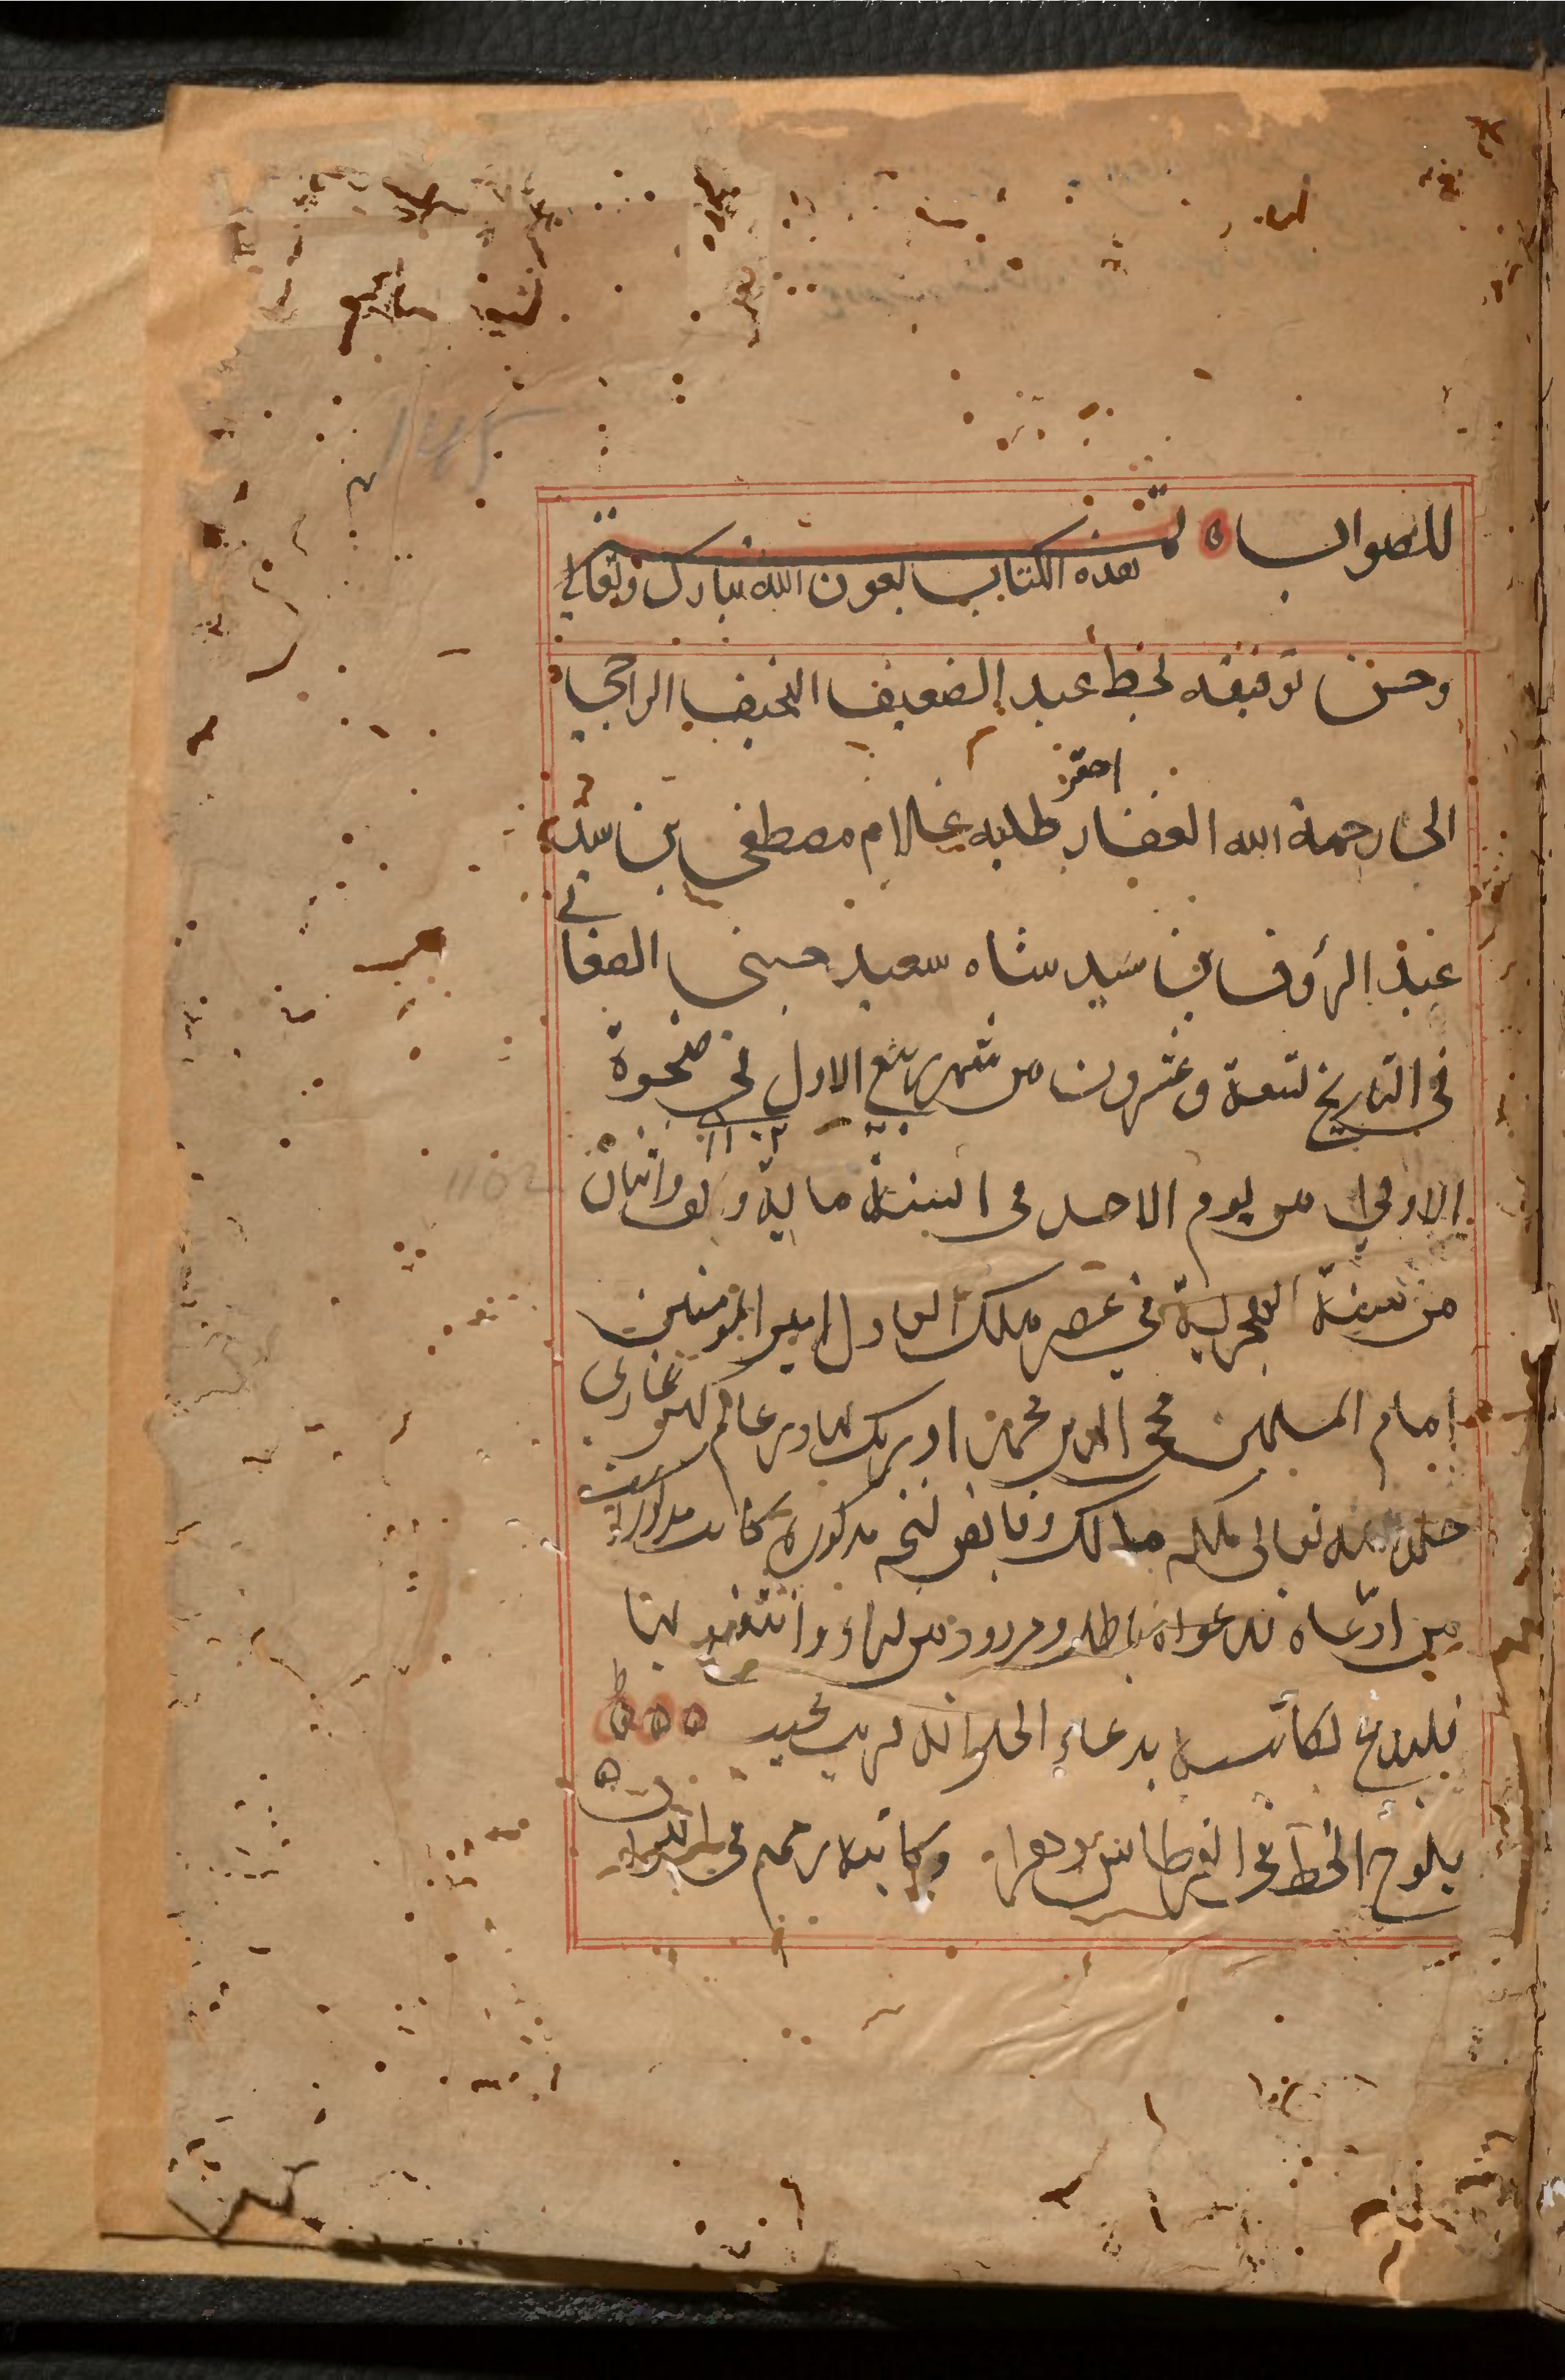 145
للصواب ه تمت
هذه الكتاب بعون الله تبارك وتعالى
وحسن توفيقه بخط عبد الضعيف النحيف الراجي
احقر
الى رحمة الله الغفار طلبه غلام مصطفى بن سيد
عبد الرؤف بن سيد شاه سعيد حسني
في التاريخ تسعة وعشرون من شهر ربيع الاول في ضحوة
١١٠٢
1102
الاولى من يوم الاحد في السنة ماية والف واثنان
من سنة الهجرية في عصر ملك العادل امير المومنين
امام المسلمين محي الدين محمد اورنك بهادر عالمكير غازى
خلد الله تعالى ملكه مالك وقابض نسخه مذكوره كاتب مذكور است
من ادعاه فدعواه باطل ومردود من قراء وانتفع بها
فليدع لكاتبه بدعاء الخير انه قريب مجيد
يلوح الخط في القرطاس دهرا وكاتبه رميم في التراب